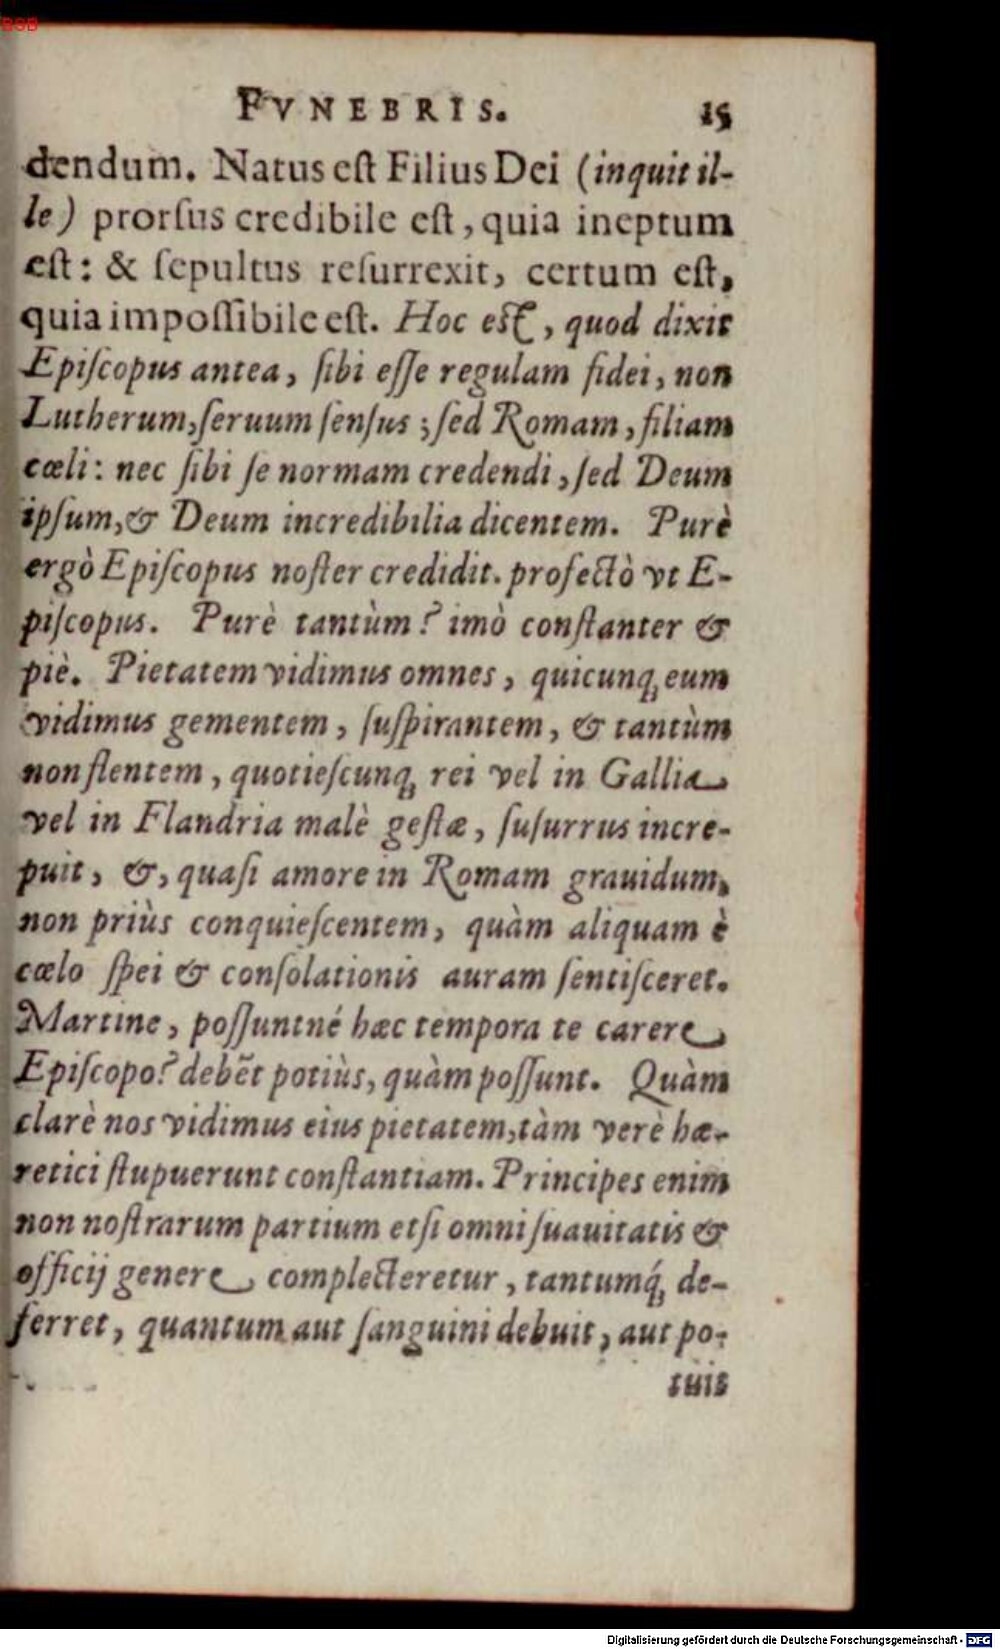 BSB
FVNEBRIS. 15
dendum. Natus est Filius Dei (inquit il-
le) prorsus credibile est, quia ineptum
est: & sepultus resurrexit, certum est,
quia impossibile est. Hoc est, quod dixit
Episcopus antea, sibi esse regulam fidei, non
Lutherum, seruum sensus; sed Romam, filiam
cœli: nec sibi se normam credendi, sed Deum
ipsum, & Deum incredibilia dicentem. Purè
ergò Episcopus noster credidit. profectò vt E-
piscopus. Purè tantùm? imò constanter &
piè. Pietatem vidimus omnes, quicunq; eum
vidimus gementem, suspirantem, & tantùm
non flentem, quotiescunq; rei vel in Gallia
vel in Flandria malè gestæ, susurrus incre-
puit, &, quasi amore in Romam grauidum,
non priùs conquiescentem, quàm aliquam è
cœlo spei & consolationis auram sentisceret.
Martine, possuntné hæc tempora te carere
Episcopo? debēt potiùs, quàm possunt. Quàm
clarè nos vidimus eius pietatem, tàm verè hæ-
retici stupuerunt constantiam. Principes enim
non nostrarum partium etsi omni suauitatis &
officij genere complecteretur, tantumq́; de-
ferret, quantum aut sanguini debuit, aut po-
tuit
Digitalisierung gefördert durch die Deutsche Forschungsgemeinschaft - DFG